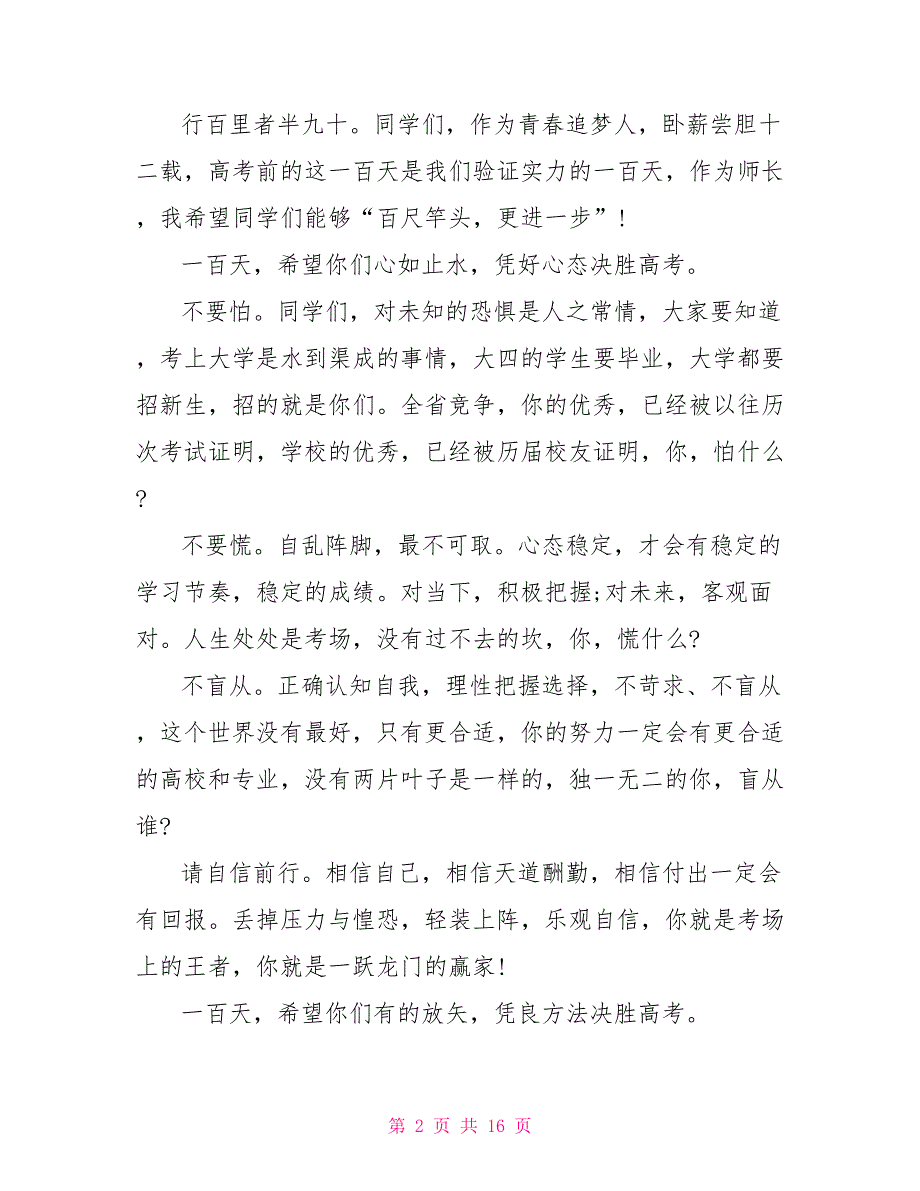 行百里者半九十。同学们，作为青春追梦人，卧薪尝胆十
二载，高考前的这一百天是我们验证实力的一百天，作为师长
，我希望同学们能够“百尺竿头，更进一步”!
一百天，希望你们心如止水，凭好心态决胜高考。
不要怕。同学们，对未知的恐惧是人之常情，大家要知道
，考上大学是水到渠成的事情，大四的学生要毕业，大学都要
招新生，招的就是你们。全省竞争，你的优秀，已经被以往历
次考试证明，学校的优秀，已经被历届校友证明，你，怕什么
?
不要慌。自乱阵脚，最不可取。心态稳定，才会有稳定的
学习节奏，稳定的成绩。对当下，积极把握;对未来，客观面
对。人生处处是考场，没有过不去的坎，你，慌什么?
不盲从。正确认知自我，理性把握选择，不苛求、不盲从
，这个世界没有最好，只有更合适，你的努力一定会有更合适
的高校和专业，没有两片叶子是一样的，独一无二的你，盲从
谁?
请自信前行。相信自己，相信天道酬勤，相信付出一定会
有回报。丢掉压力与惶恐，轻装上阵，乐观自信，你就是考场
上的王者，你就是一跃龙门的赢家!
一百天，希望你们有的放矢，凭良方法决胜高考。
第 2 页 共 16 页